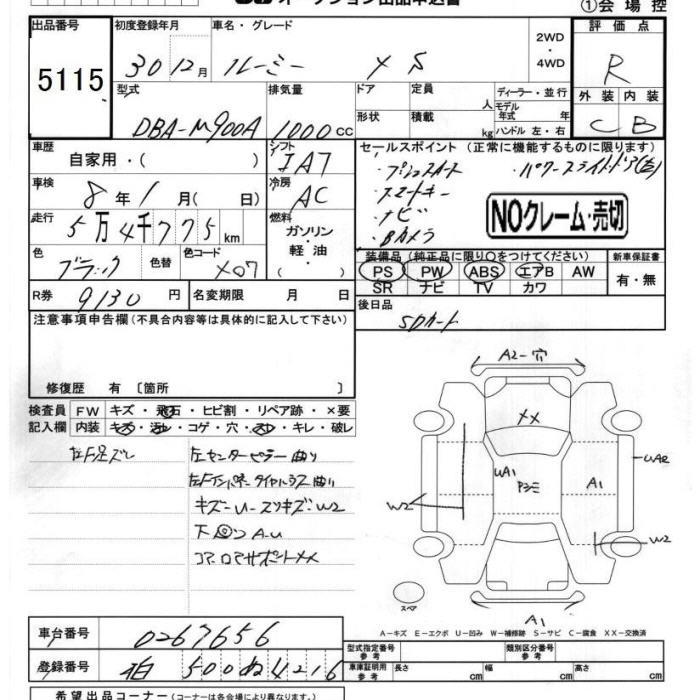 オークション出品申込書
①会場控
出品番号 初度登録年月 車名・グレード 評価点
5115 30 12月 ルーミー X S 2WD・4WD R
型式 排気量 ドア 定員 人 ディーラー・並行 外装 内装
DBA-M900A 1000CC 形状 積載 kg モデル年式 年 ハンドル 左・右 C B
車歴 自家用・( ) シフト IAT セールスポイント (正常に機能するものに限ります)
・プッシュスタート ・パワースライドドア(左)
車検 8年 1月 ( 日) 冷房 AC ・スマートキー
・ナビ NOクレーム・売切
走行 5万4千775km 燃料 ガソリン・軽・油 ( ) ・Bカメラ
色 ブラック 色替 色コード X07 装備品 (純正品に限り○をつけてください) 新車保証書
PS PW ABS エアB AW 有・無
SR ナビ TV カワ
R券 9130円 名変期限 月 日 後日品
SDカード
注意事項申告欄(不具合内容等は具体的に記入して下さい)
修復歴 有 〔箇所 〕
検査員 FW キズ・飛石・ヒビ割・リペア跡・×要
記入欄 内装 キズ・汚レ・コゲ・穴・スレ・キレ・破レ
左F足ズレ
左センターピラー曲り
左Fインパネ
曲り
キズーU-スリキズーW2
A-U
コアロアサポートXX
A2-穴
XX
UA1
UA2
A1
W2
W2
スペア
A1
A-キズ E-エクボ U-凹み W-補修跡 S-サビ C-腐食 XX-交換済
車台番号 0267656
型式指定番号 参考 類別区分番号 参考
登録番号 柏 500 ぬ 4216
車庫証明用 参考 長さ cm 幅 cm 高さ cm
希望出品コーナー(各会場により異なります)